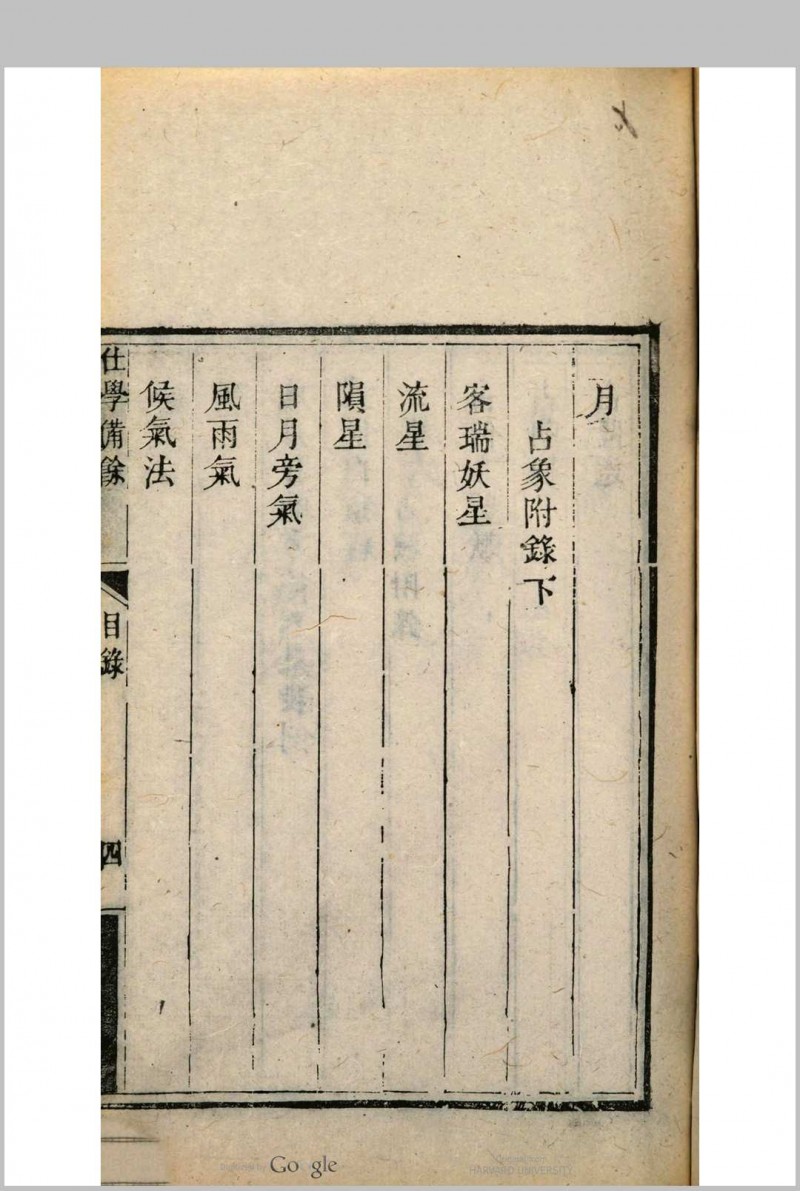 月
占象附錄下
客瑞妖星
流星
隕星
日月旁氣
風雨氣
候氣法
仕學備餘
目錄
四
Google
HARVARD UNIVERSITY